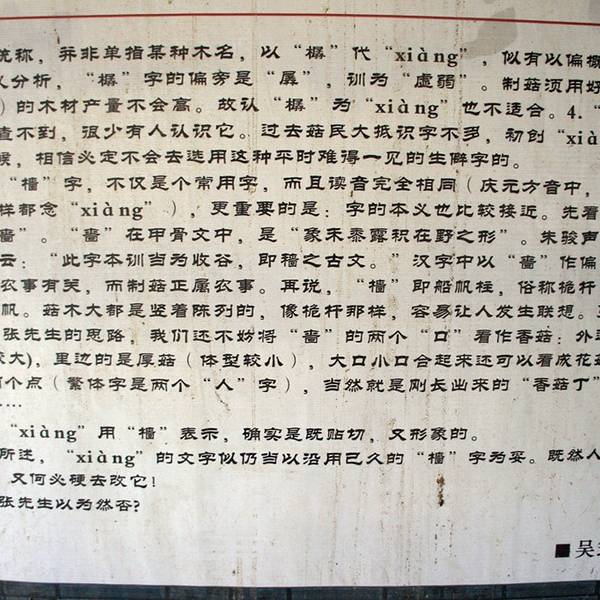 统称，并非单指某种木名，以“榍”代“xiàng”，似有以偏概
义分析，“榍”字的偏旁是“屑”，训为“虚弱”。制菇须用好
）的木材产量不会高。故认“榍”为“xiàng”也不适合。4．“
查不到，很少有人认识它。过去菇民大抵识字不多，初创“xià
候，相信必定不会去选用这种平时难得一见的生僻字的。
“樯”字，不仅是个常用字，而且读音完全相同（庆元方音中，
样都念“xiàng”），更重要的是：字的本义也比较接近。先看
啬”。“啬”在甲骨文中，是“象禾黍露积在野之形”。朱骏声
云：“此字本训当为收谷，即穑之古文。”汉字中以“啬”作偏
农事有关，而制菇正属农事。再说，“樯”即船帆柱，俗称桅杆
帆。菇木大都是竖着陈列的，像桅杆那样，容易让人发生联想。
张先生的思路，我们还不妨将“啬”的两个“口”看作香菇：外
较大)，里边的是厚菇（体型较小），大口小口合起来还可以看成花菇
个点（繁体字是两个“人”字），当然就是刚长出来的“香菇丁”
……
“xiàng”用“樯”表示，确实是既贴切，又形象的。
所述，“xiàng”的文字似仍当以沿用已久的“樯”字为妥。既然人
又何必硬去改它！
张先生以为然否？
■吴